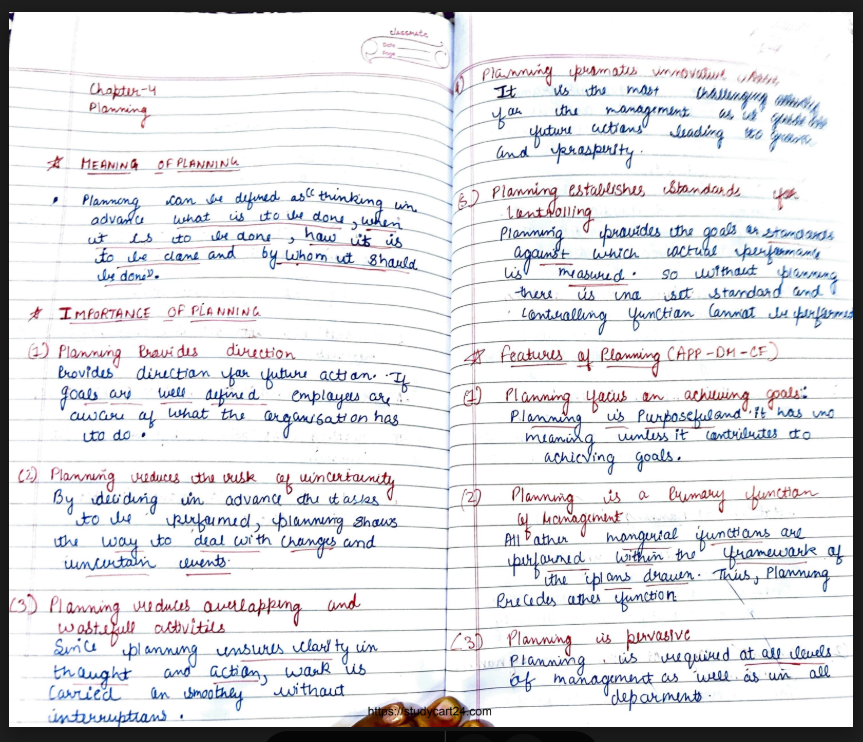 classmate
Date
Page
Chapter-4
Planning
MEANING OF PLANNING
Planning can be defined as "thinking in
advance what is to be done, when
it is to be done, how it is
to be done and by whom it should
be done".
IMPORTANCE OF PLANNING
(1) Planning Provides direction
Provides direction for future action. If
goals are well defined employees are
aware of what the organisation has
to do.
(2) Planning reduces the risk of uincertainity
By deciding in advance the tasks
to be performed, planning shows
the way to deal with changes and
uncertain events.
(3) Planning reduces overlapping and
wastefull activities
Since planning ensures clarity in
thought and action, work is
carried on smoothly without
interruptions.
Planning promotes innovative
It is the most challenging
for the management as it
future actions leading to
and prosperity.
(5) Planning establishes standards for
Controlling
Planning provides the goals or standards
against which actual performance
is measured. so without planning
there is no set standard and
controlling function cannot be performed
Features of Planning (APP-DM-CF)
(1) Planning focus on achieving goals:
Planning is Purposeful and it has no
meaning unless it contributes to
achieving goals.
(2) Planning is a Primary function
of Management
All other mangerial functions are
performed within the framework of
the plans drawn. Thus, Planning
Precedes other function
(3) Planning is pervasive
Planning is required at all levels
of management as well as in all
deparments.
https://studycart24.com